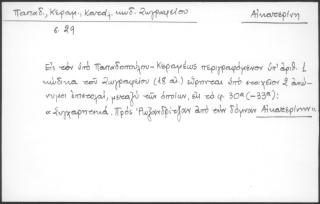 Παπαδ., Κεραμ., Καταλ. κωδ. Ζωγραφείου
Αἰκατερίνη
σ. 29
Εἰς τὸν ὑπὸ Παπαδοπούλου-Κεραμέως περιγραφόμενον ὑπ' ἀριθ. 1
κώδικα τοῦ Ζωγραφείου (18 αἰ.) εὕρηνται ὑπὸ στοιχεῖον 2 ἀνώ-
νυμοι ἐπιστολαί, μεταξὺ τῶν ὁποίων, εἰς τὸ φ. 30α (-33α):
«Συγχαρητικά. Πρὸς ἀπὸ τὴν δόμναν Αἰκατερίνην».